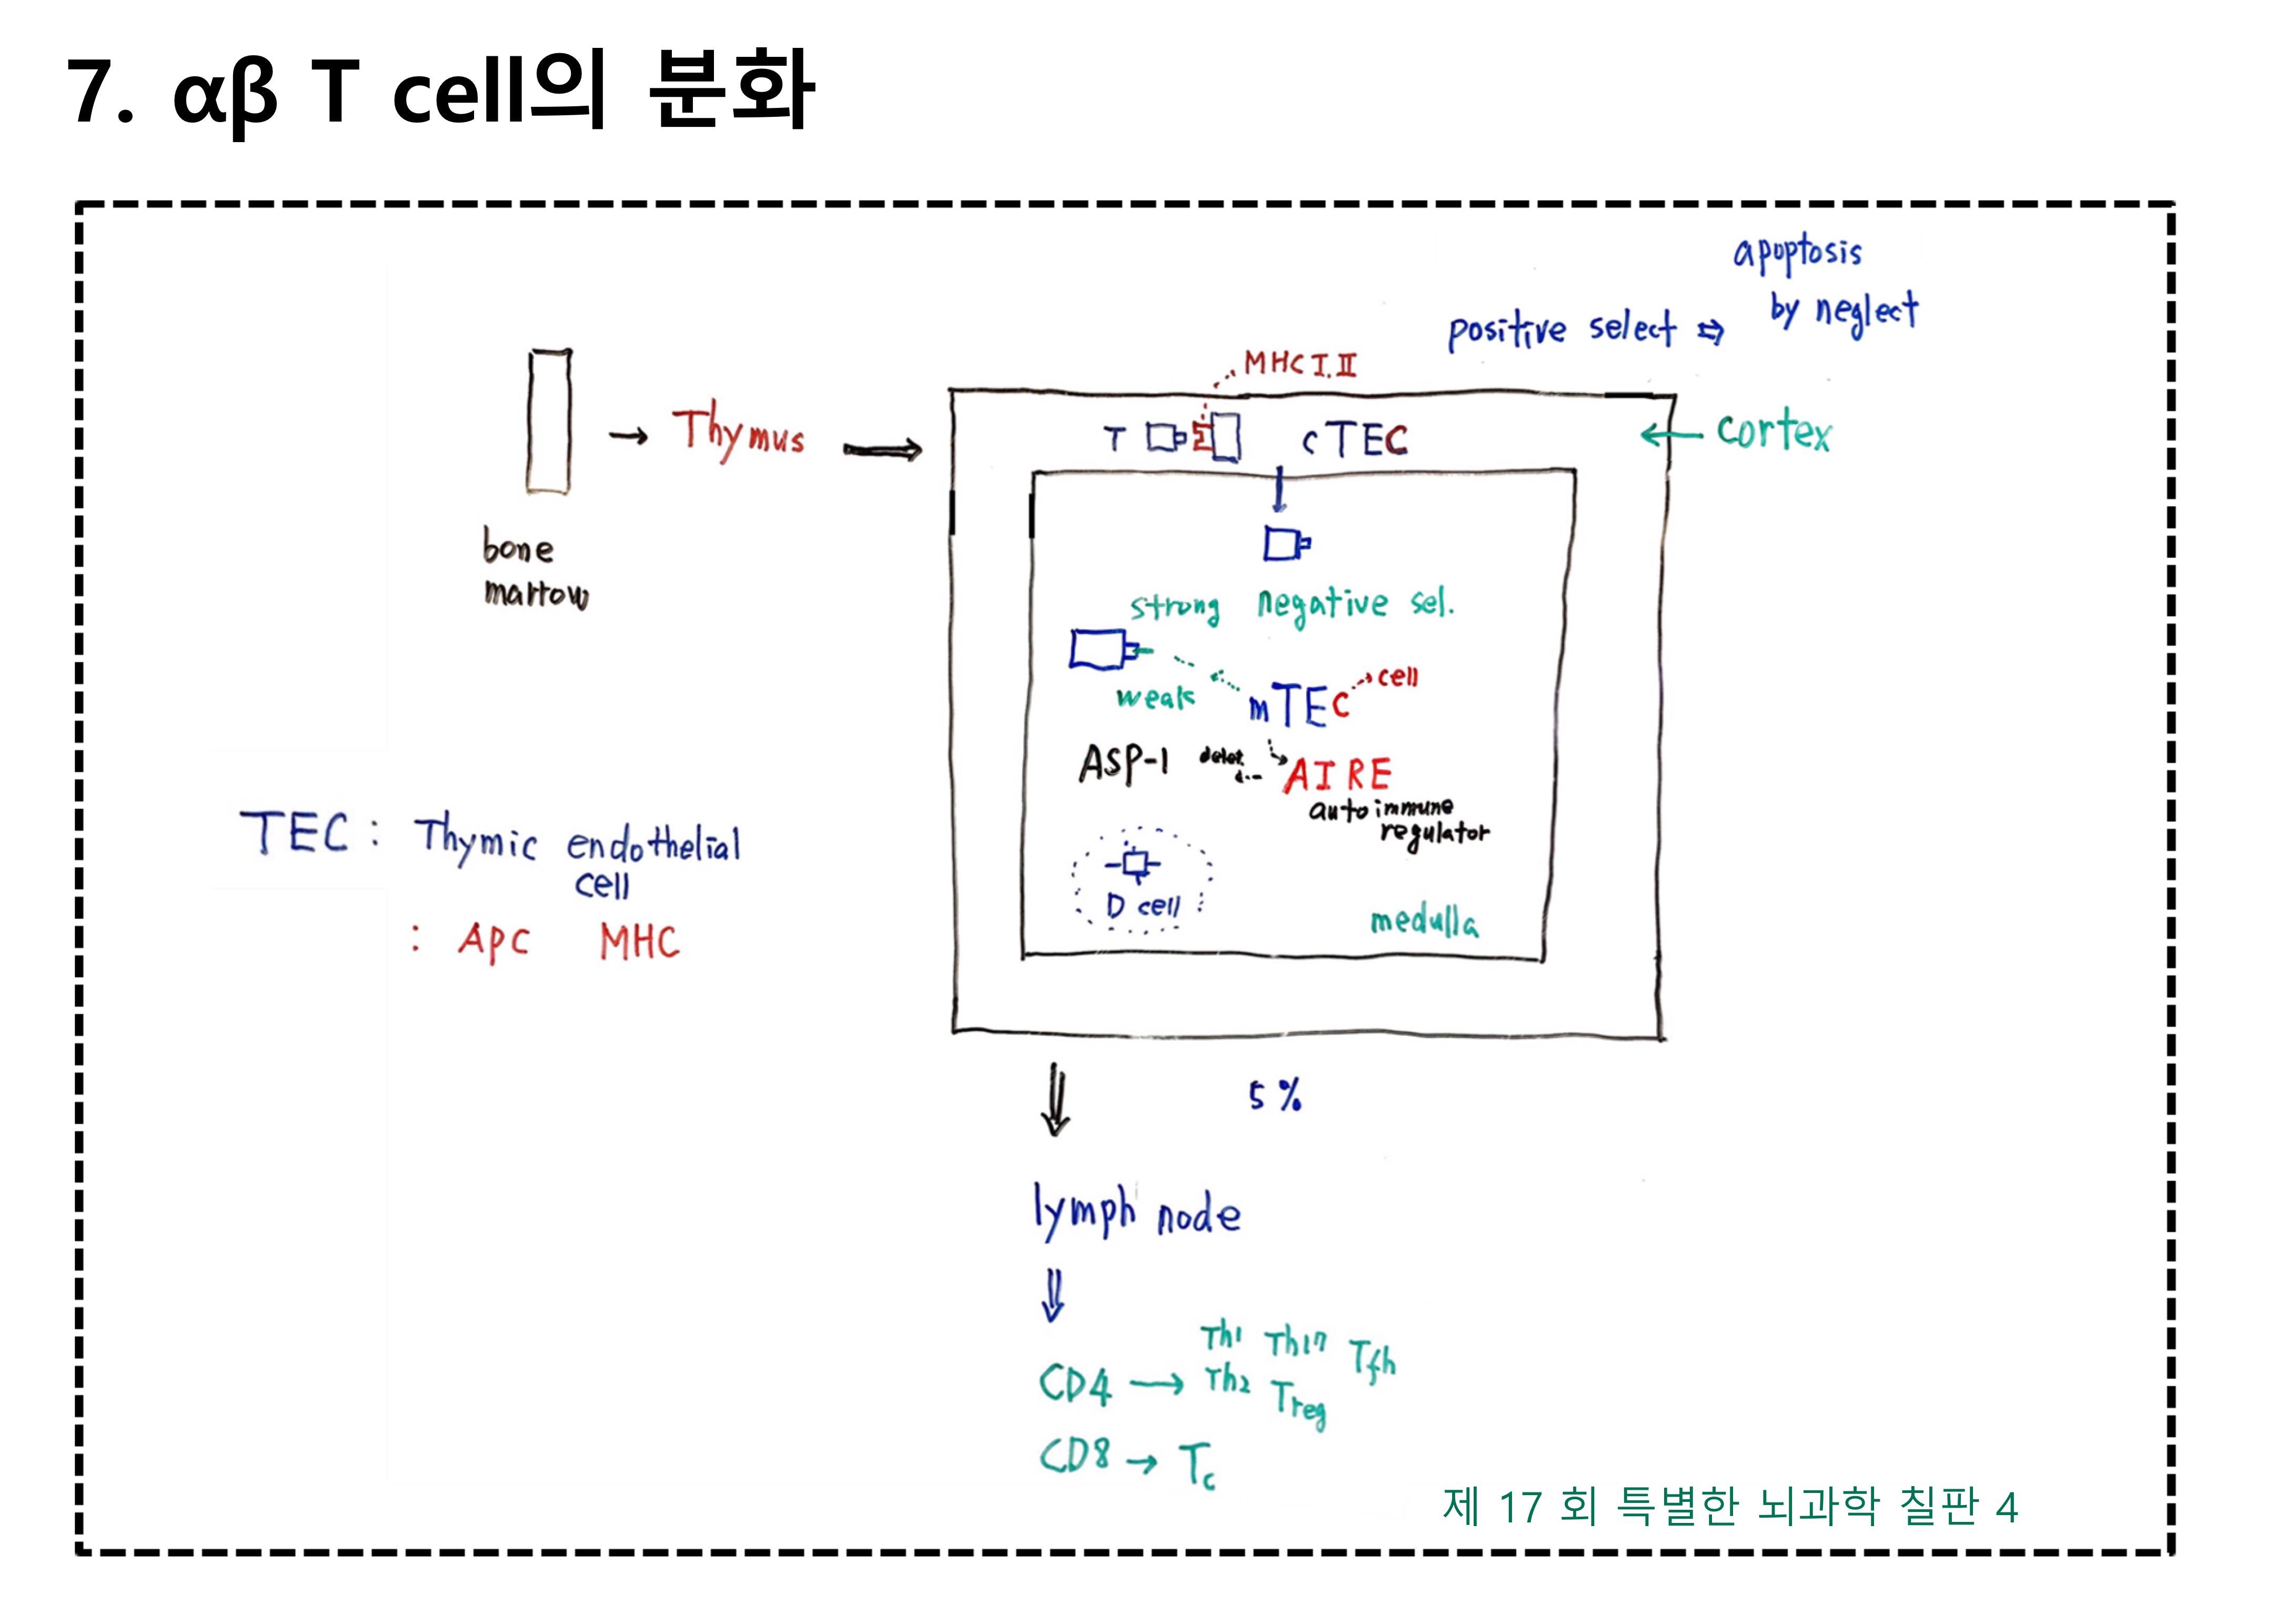 7. αβ T cell의 분화
apoptosis
by neglect
positive select ⇨
MHC I.II
T
cTEC
← cortex
bone
marrow
→ Thymus ⇒
strong negative sel.
weak
mTEC
cell
ASP-1
delet.
AIRE
autoimmune
regulator
D cell
medulla
TEC : Thymic endothelial
cell
: APC MHC
5%
lymph node
Th1 Th17 Tfh
CD4 → Th2 Treg
CD8 → Tc
제 17 회 특별한 뇌과학 칠판 4